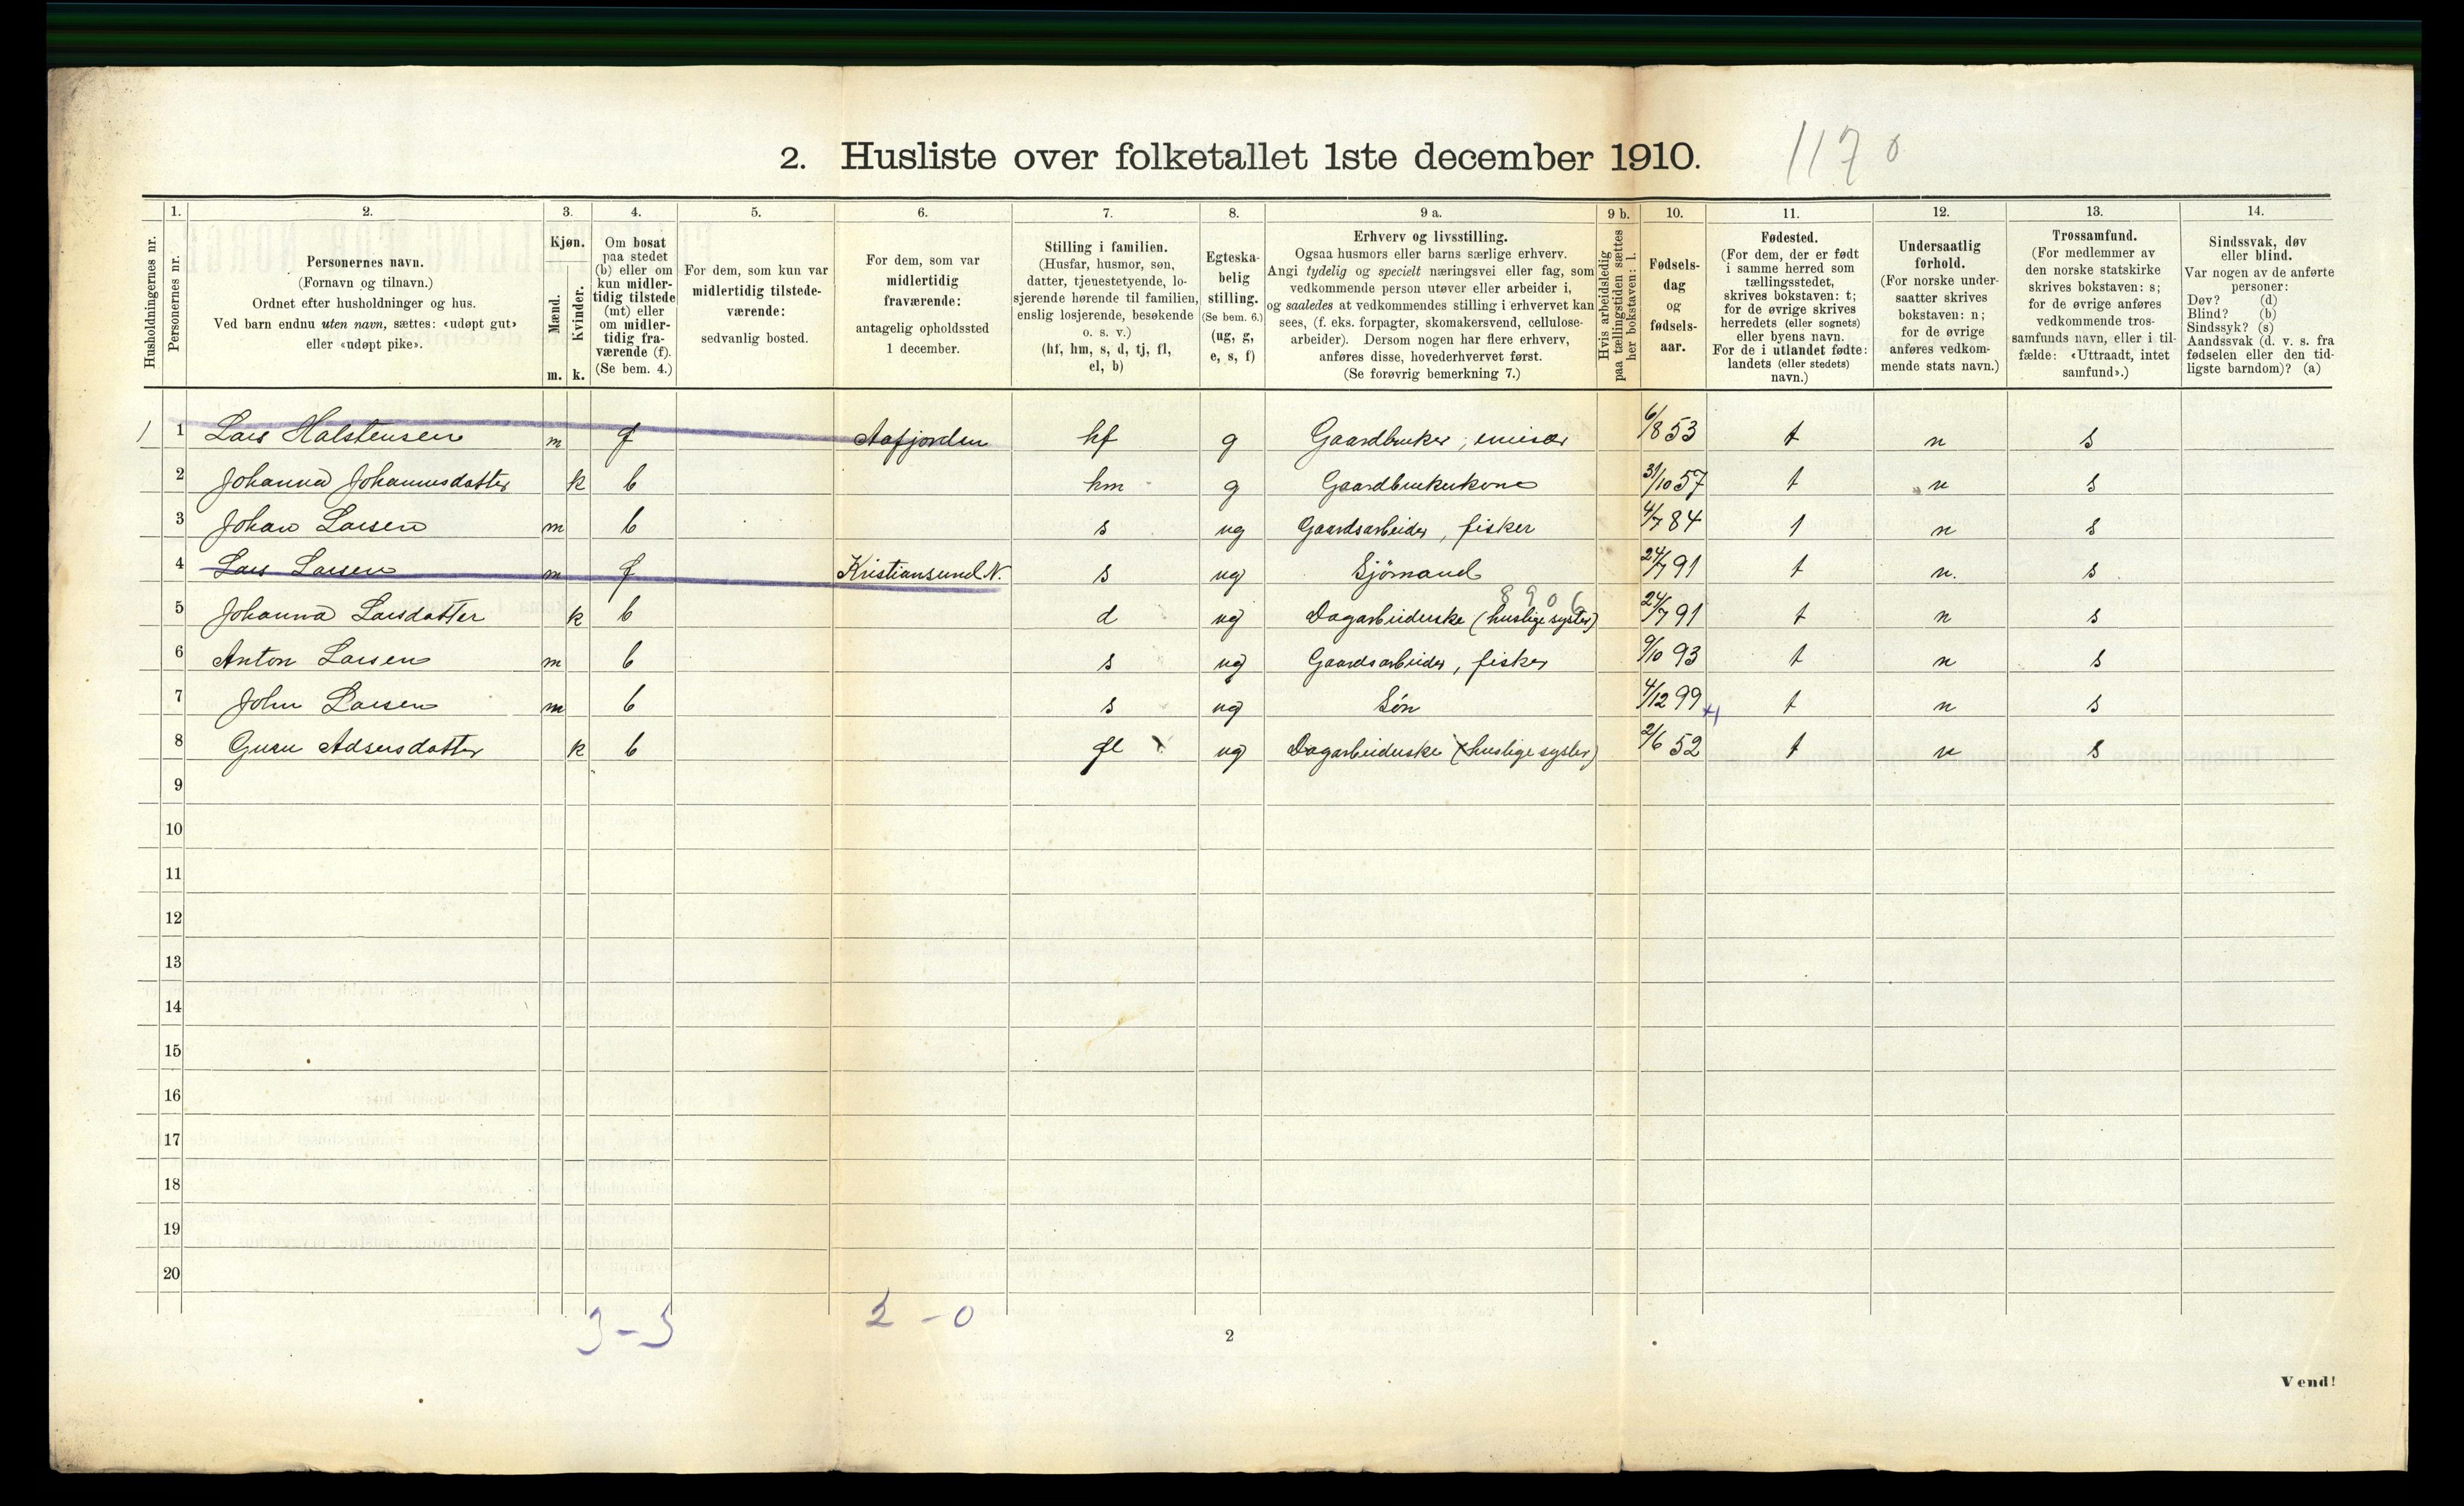 2. Husliste over folketallet 1ste december 1910.
1170
Husholdningernes nr.
1.
Personernes nr.
2.
Personernes navn.
(Fornavn og tilnavn.)
Ordnet efter husholdninger og hus.
Ved barn endnu uten navn, sættes: «udøpt gut»
eller «udøpt pike».
3.
Kjøn.
Mænd.
Kvinder.
m. k.
4.
Om bosat
paa stedet
(b) eller om
kun midler-
tidig tilstede
(mt) eller
om midler-
tidig fra-
værende (f).
(Se bem. 4.)
5.
For dem, som kun var
midlertidig tilstede-
værende:
sedvanlig bosted.
6.
For dem, som var
midlertidig
fraværende:
antagelig opholdssted
1 december.
7.
Stilling i familien.
(Husfar, husmor, søn,
datter, tjenestetyende, lo-
sjerende hørende til familien,
enslig losjerende, besøkende
o. s. v.)
(hf, hm, s, d, tj, fl,
el, b)
8.
Egteska-
belig
stilling.
(Se bem. 6.)
(ug, g,
e, s, f)
9 a.
Erhverv og livsstilling.
Ogsaa husmors eller barns særlige erhverv.
Angi tydelig og specielt næringsvei eller fag, som
vedkommende person utøver eller arbeider i,
og saaledes at vedkommendes stilling i erhvervet kan
sees, (f. eks. forpagter, skomakersvend, cellulose-
arbeider). Dersom nogen har flere erhverv,
anføres disse, hovederhvervet først.
(Se forøvrig bemerkning 7.)
9 b.
Hvis arbeidsledig
paa tællingstiden sættes
her bokstaven: l.
10.
Fødsels-
dag
og
fødsels-
aar.
11.
Fødested.
(For dem, der er født
i samme herred som
tællingsstedet,
skrives bokstaven: t;
for de øvrige skrives
herredets (eller sognets)
eller byens navn.
For de i utlandet fødte:
landets (eller stedets)
navn.)
12.
Undersaatlig
forhold.
(For norske under-
saatter skrives
bokstaven: n;
for de øvrige
anføres vedkom-
mende stats navn.)
13.
Trossamfund.
(For medlemmer av
den norske statskirke
skrives bokstaven: s;
for de øvrige anføres
vedkommende tros-
samfunds navn, eller i til-
fælde: «Uttraadt, intet
samfund».)
14.
Sindssvak, døv
eller blind.
Var nogen av de anførte
personer:
Døv? (d)
Blind? (b)
Sindssyk? (s)
Aandssvak (d. v. s. fra
fødselen eller den tid-
ligste barndom)? (a)
1 1 Lars Halstensen m f Aafjorden hf g Gaardbruker, emisær 6/8 53 t n s
2 Johanna Johannesdatter k b hm g Gaardbrukerkone 31/10 57 t n s
3 Johan Larsen m b s ug Gaardsarbeider, fisker 4/7 84 t n s
4 Lars Larsen m f Kristiansund N. s ug Sjømand 24/7 91 t n. s
8906
5 Johanna Larsdatter k b d ug Dagarbeiderske (huslige sysler) 24/7 91 t n s
6 Anton Larsen m b s ug Gaardsarbeider, fisker 9/10 93 t n s
7 John Larsen m b s ug Søn 4/12 99 t n s
8 Guru Adsersdatter k b fl ug Dagarbeiderske (huslige sysler) 2/6 52 t n s
9
10
11
12
13
14
15
16
17
18
19
20
3-3 2-0
2
Vend!